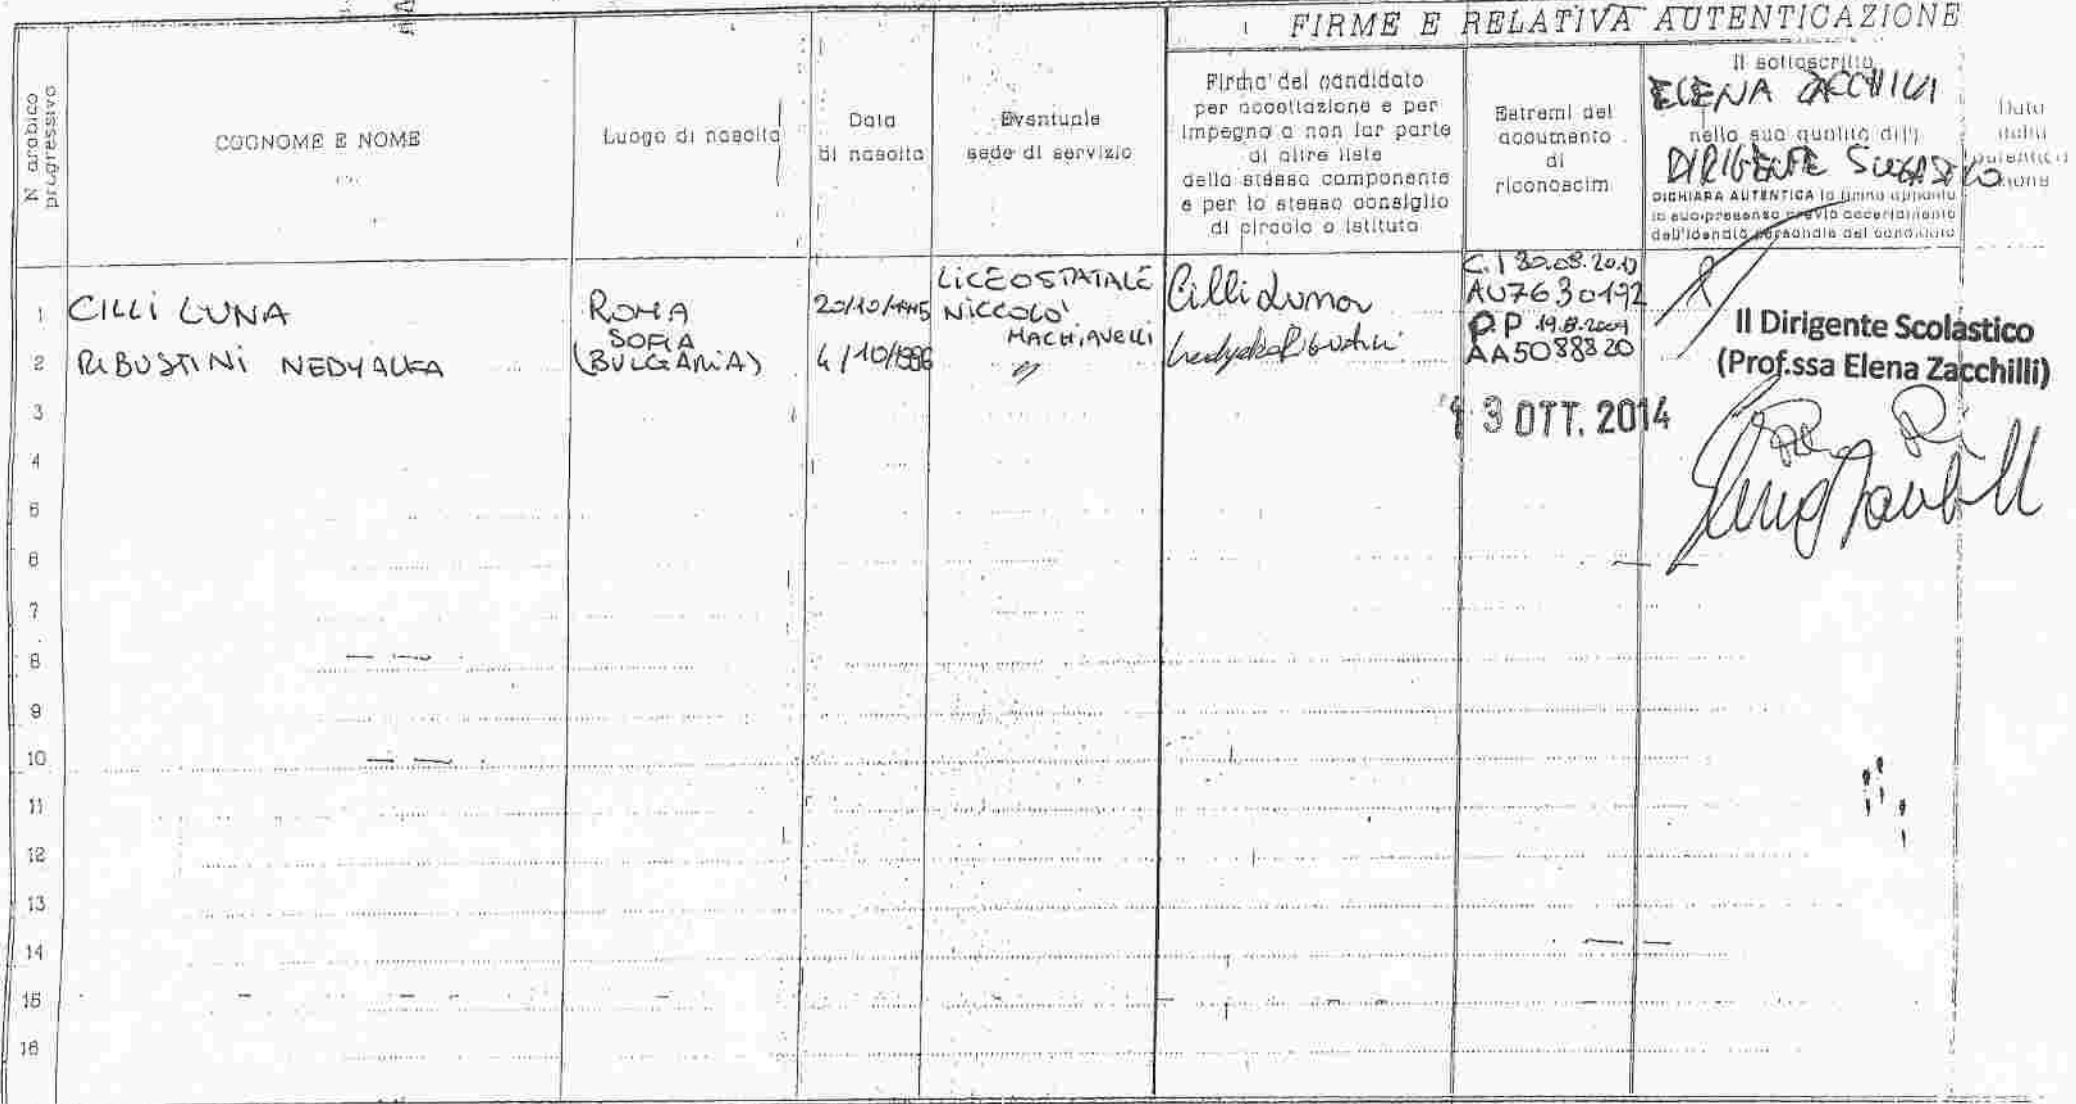 FIRME E RELATIVA AUTENTICAZIONE
N arabico
progressivo
COGNOME E NOME
Luogo di nascita
Data
di nascita
Eventuale
sede di servizio
Firma del candidato
per accettazione e per
impegno a non far parte
di altre liste
della stessa componente
e per lo stesso consiglio
di circolo o istituto
Estremi del
documento
di
riconoscim
Il sottoscritto
ELENA ZACCHILLI
nella sua qualità di
DIRIGENTE SCOLASTICO
DICHIARA AUTENTICA la firma apposta
in sua presenza previo accertamento
dell'identità personale del candidato
Data
della
autentica
zione
1 CILLI LUNA
ROMA
20/10/
LICEO STATALE
NICCOLO'
MACHIAVELLI
Cilli Luna
C.I 30.08.
AU7630192
2 RIBUSTINI NEDYALKA
SOFIA
(BULGARIA)
4/10/1996
"
P.P 19.8.2009
AA5088820
Il Dirigente Scolastico
(Prof.ssa Elena Zacchilli)
13 OTT. 2014
3
4
5
6
7
8
9
10
11
12
13
14
15
16